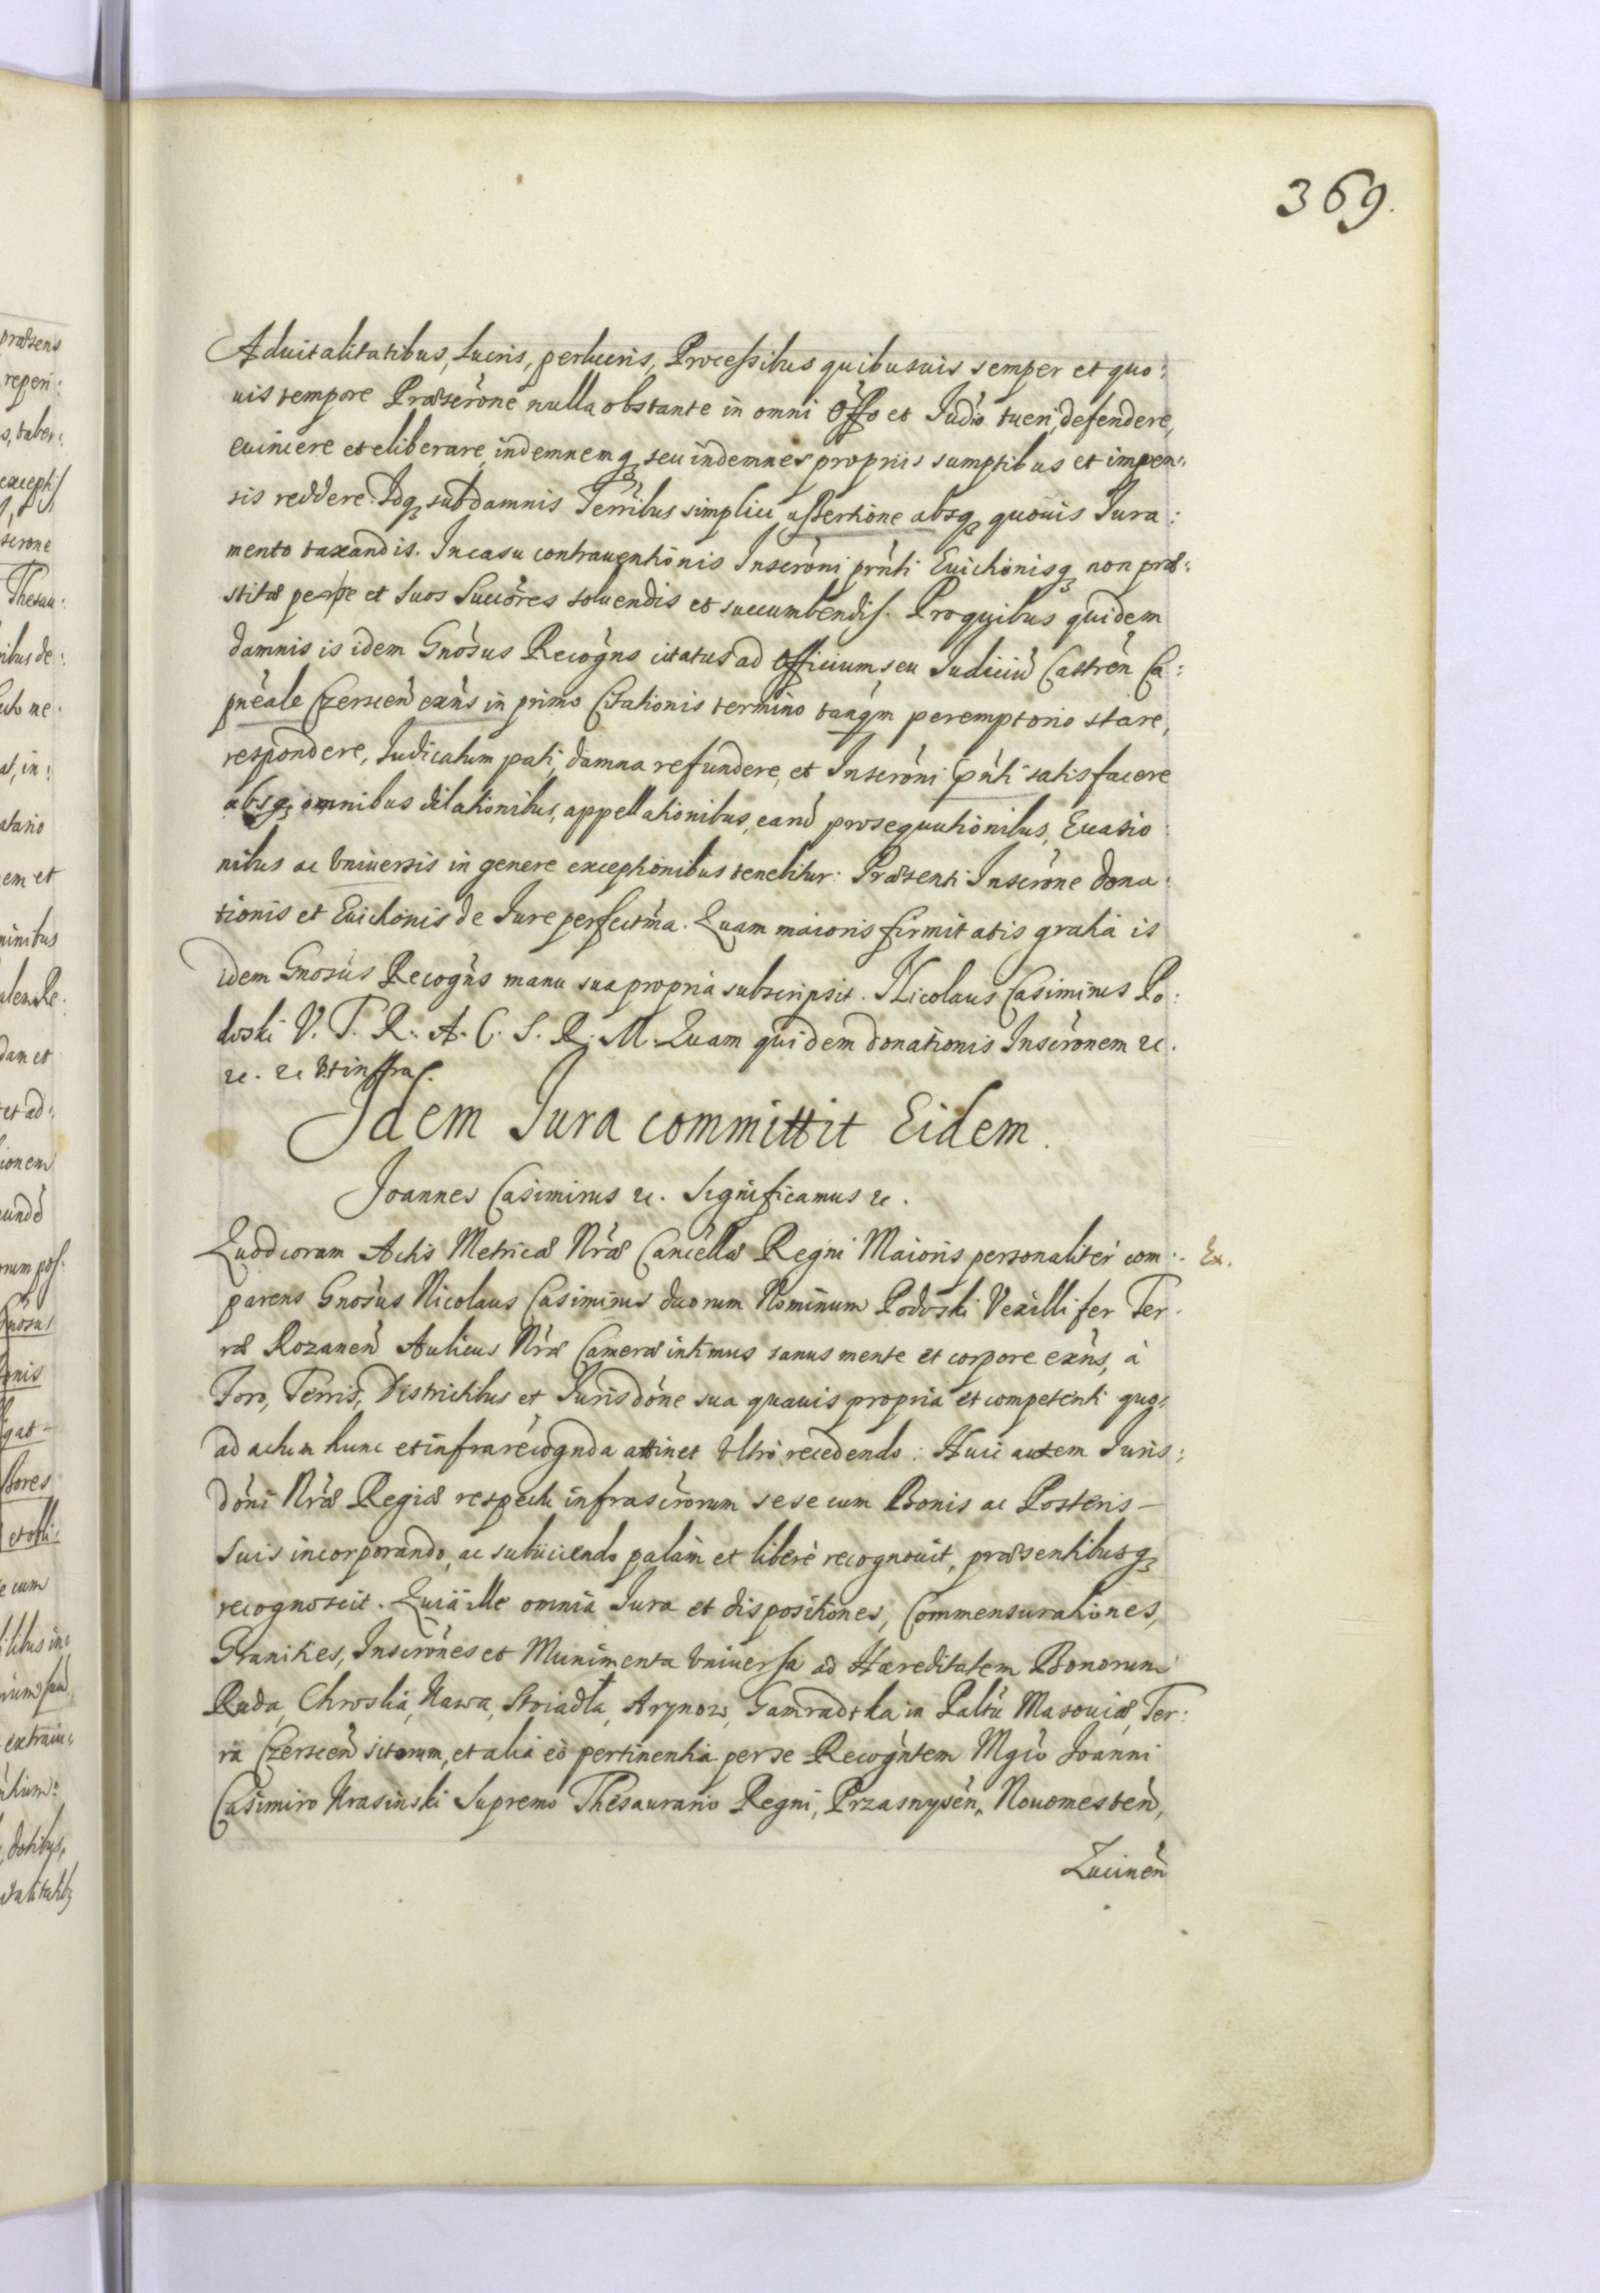 369.
Aduitalitatibus, Lucris, perlucris, Processibus quibusuis semper et quo:
uis tempore Præscrone nulla obstante in omni Offo et Judio tueri, defendere,
euincere et eliberare, indemnemq seu indemnes propriis sumptibus et impen:
sis reddere. Idq sub damnis Terribus simplici assertione absq quouis Jura:
mento taxandis. In casu contrauentionis Inscroni prnti Euictionisq non præ:
stitæ per se et Suos Succores soluendis et succumbendis. Pro quibus quidem
damnis is idem Gnosus Recogns citatus ad Officium seu Judiciu Castren Ca:
pneale Czerscen exns in primo Citationis termino tanqm peremptorio stare,
respondere, Judicatum pati, damna refundere, et Inscroni prnti satisfacere
absq omnibus dilationibus, appellationibus, eand prosequutionibus, Euasio:
nibus ac Vniuersis in genere exceptionibus tenebitur. Præsenti Inscrone dona:
tionis et Euictionis de Jure perfectma. Quam maioris firmitatis gratia is
idem Gnosus Recogns manu sua propria subscripsit. Nicolaus Casimirus Po:
doski V. T. R. A. C. S. R. M. Quam quidem donationis Inscronem &c.
&c. &c Vt infra.
Idem Jura committit Eidem.
Joannes Casimirus &c. Significamus &c.
Quod coram Actis Metricæ Nræ Cancellæ Regni Maioris personaliter com:
Ex.
parens Gnosus Nicolaus Casimirus duorum Nominum Podoski Vexillifer Ter:
ræ Rozanen Aulicus Nræ Cameræ intimus sanus mente et corpore exns, à
Foro, Terris, Districtibus et Jurisdone sua quauis propria et competenti quo:
ad actum hunc et infra recognda attinet Vltro recedendo: Huic autem Juris:
doni Nræ Regiæ respectu infrascrorum sese cum Bonis ac Posteris
Suis incorporando, ac subiiciendo palam et libere recognouit, præsentibusq
recognoscit. Quia ille omnia Jura et dispositiones, Commensurationes,
Granities, Inscrones et Munimenta Vniuersa ad Hæreditatem Bonorum
Ruda, Chroslia, Nawa, Stoiadła, Arynow, Gamradtka in Paltu Masouiæ, Ter:
ra Czerscen sitorum, et alia eo pertinentia per se Recogntem Mgco Joanni
Casimiro Krasinski Supremo Thesaurario Regni, Przasnysen, Nouomesten,
Zucinen